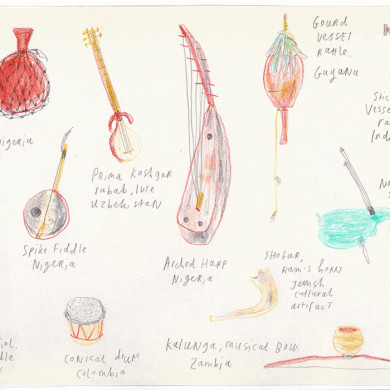 GOURD
VESSEL
RATTLE
GUYANA
Nigeria
Paima Kashgar
rubab, lute
Uzbekistan
Stic
Vesse
ra
Ind
Spike Fiddle
Nigeria
Arched Harp
Nigeria
SHOFAR,
Ram's horn
Jewish
cultural
artifact
Conical drum
Colombia
Kalunga, musical Bow.
Zambia